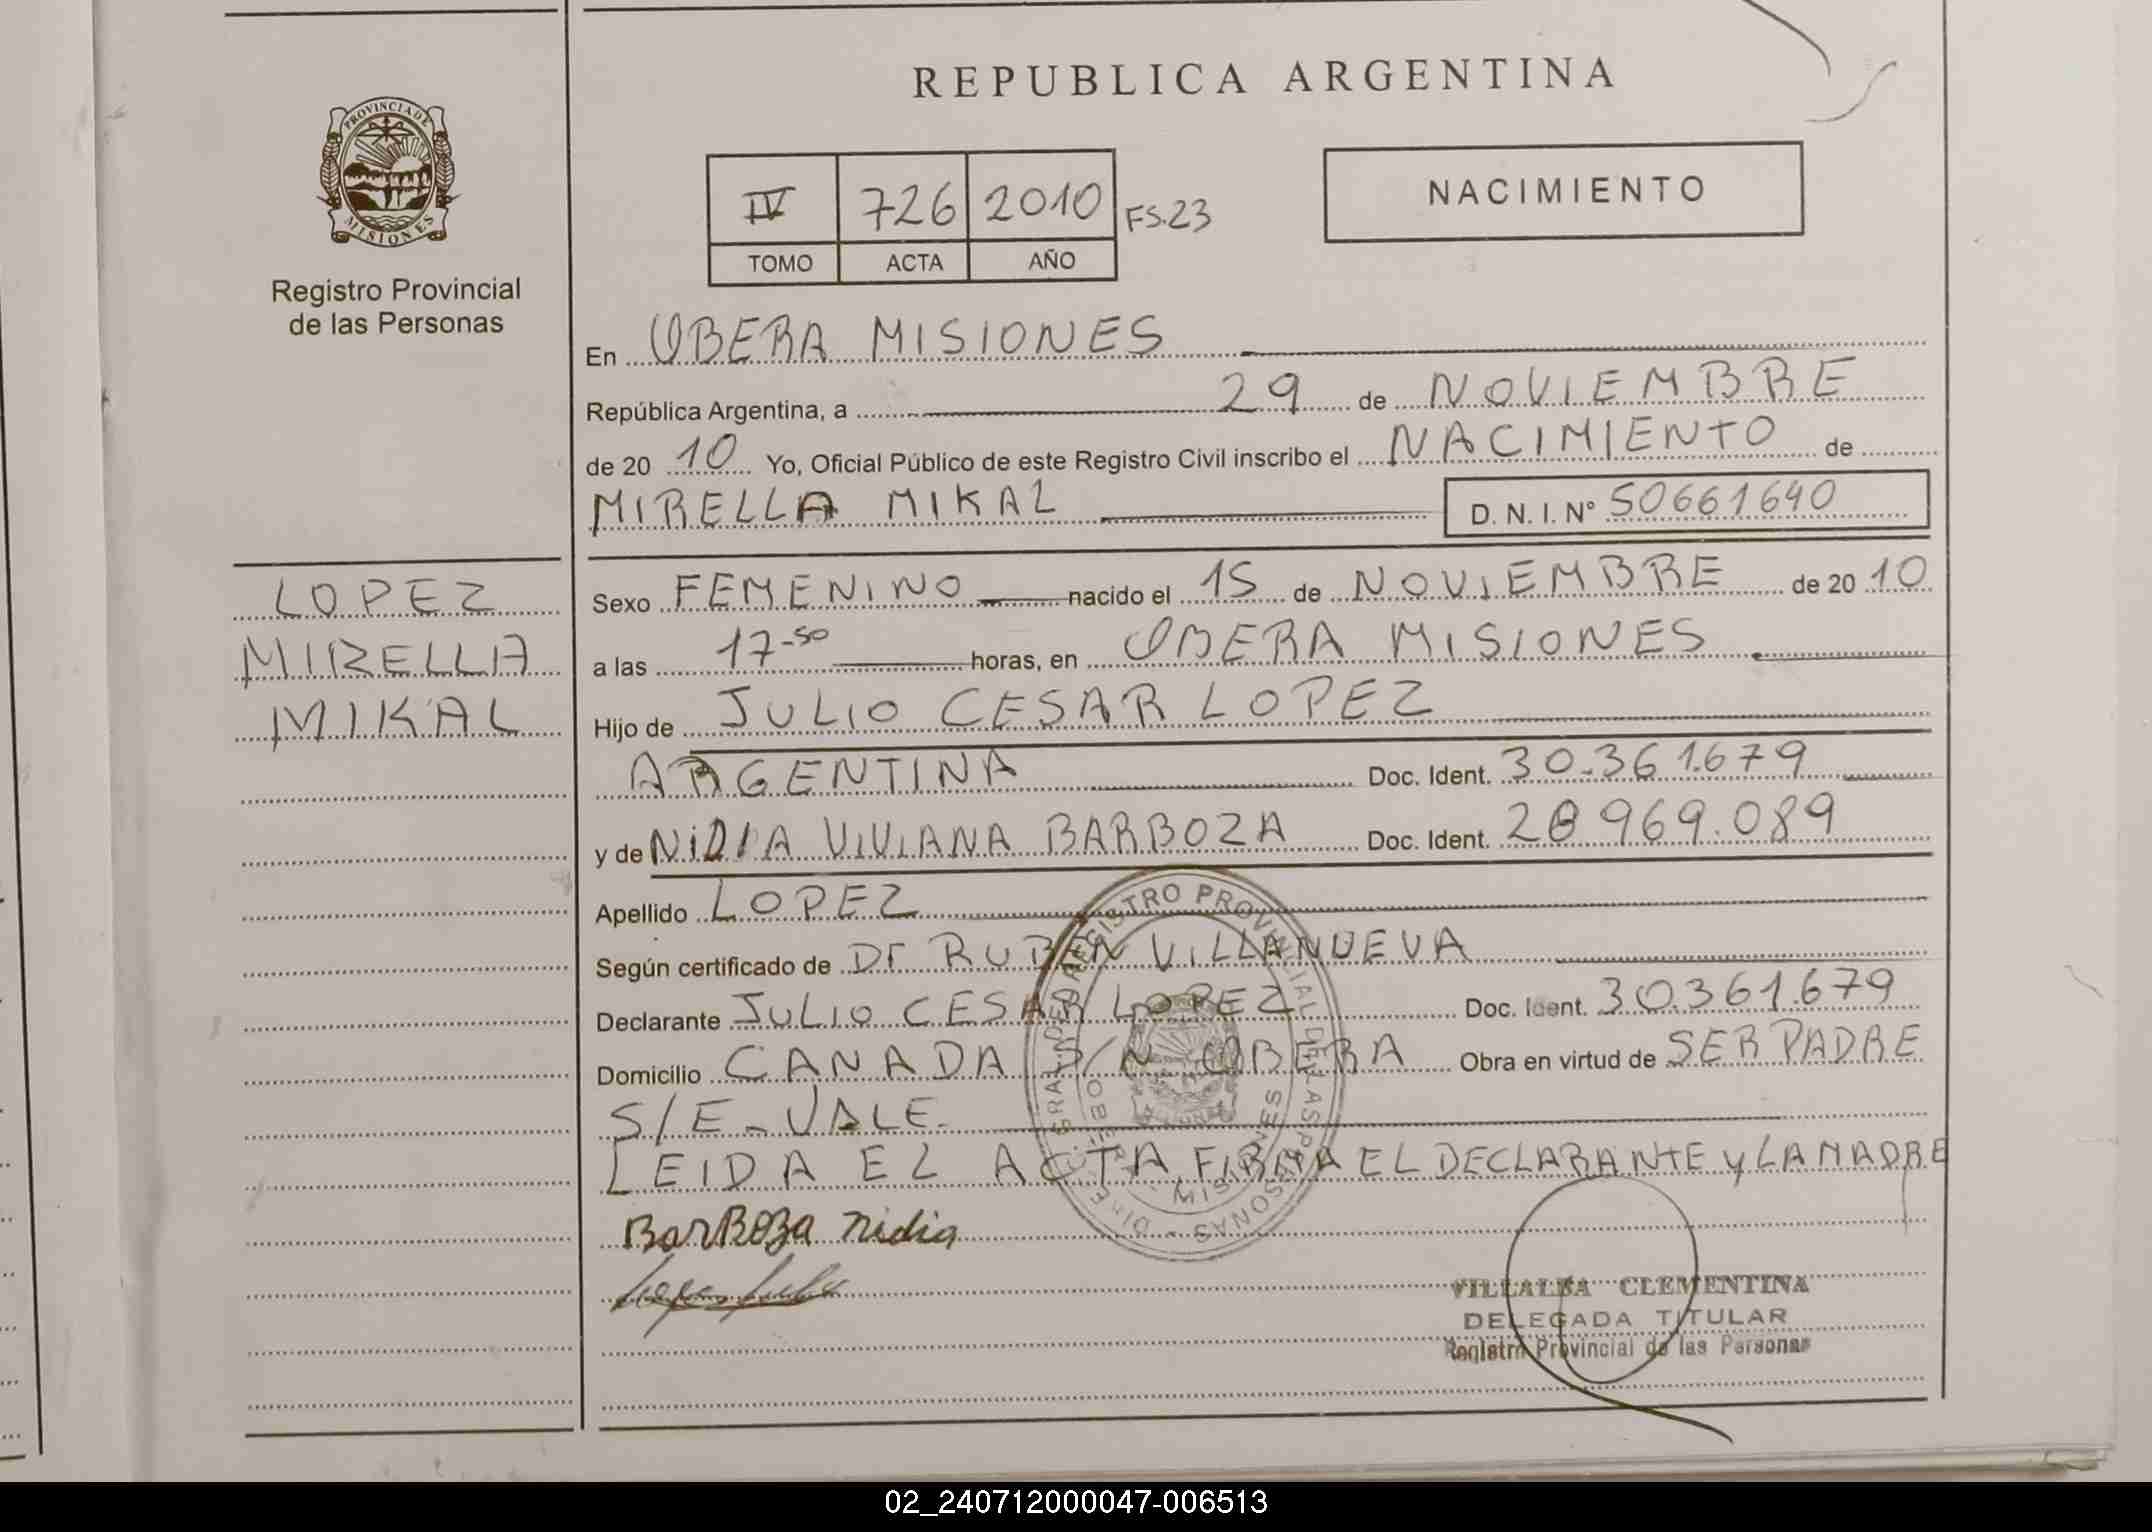 REPUBLICA ARGENTINA
PROVINCIA DE MISIONES
Registro Provincial
de las Personas
IV 726 2010 FS.23
TOMO ACTA AÑO
NACIMIENTO
En OBERA MISIONES
República Argentina, a 29 de NOVIEMBRE
de 20 10 Yo, Oficial Público de este Registro Civil inscribo el NACIMIENTO de
MIRELLA MIKAL D. N. I. Nº 50661640
LOPEZ
MIRELLA
MIKAL
Sexo FEMENINO nacido el 15 de NOVIEMBRE de 20 10
a las 17-50 horas, en OBERA MISIONES
Hijo de JULIO CESAR LOPEZ
ARGENTINA Doc. Ident. 30.361.679
y de NIDIA VIVIANA BARBOZA Doc. Ident. 28969.089
Apellido LOPEZ
Según certificado de Dr RUBEN VILLANUEVA
Declarante JULIO CESAR LOPEZ Doc. Ident. 30.361.679
Domicilio CANADA S/N OBERA Obra en virtud de SER PADRE
S/E - VALE-
LEIDA EL ACTA FIRMA EL DECLARANTE y LA MADRE
BarBoza nidia
VILLALBA CLEMENTINA
DELEGADA TITULAR
Registro Provincial de las Personas
02_240712000047-006513